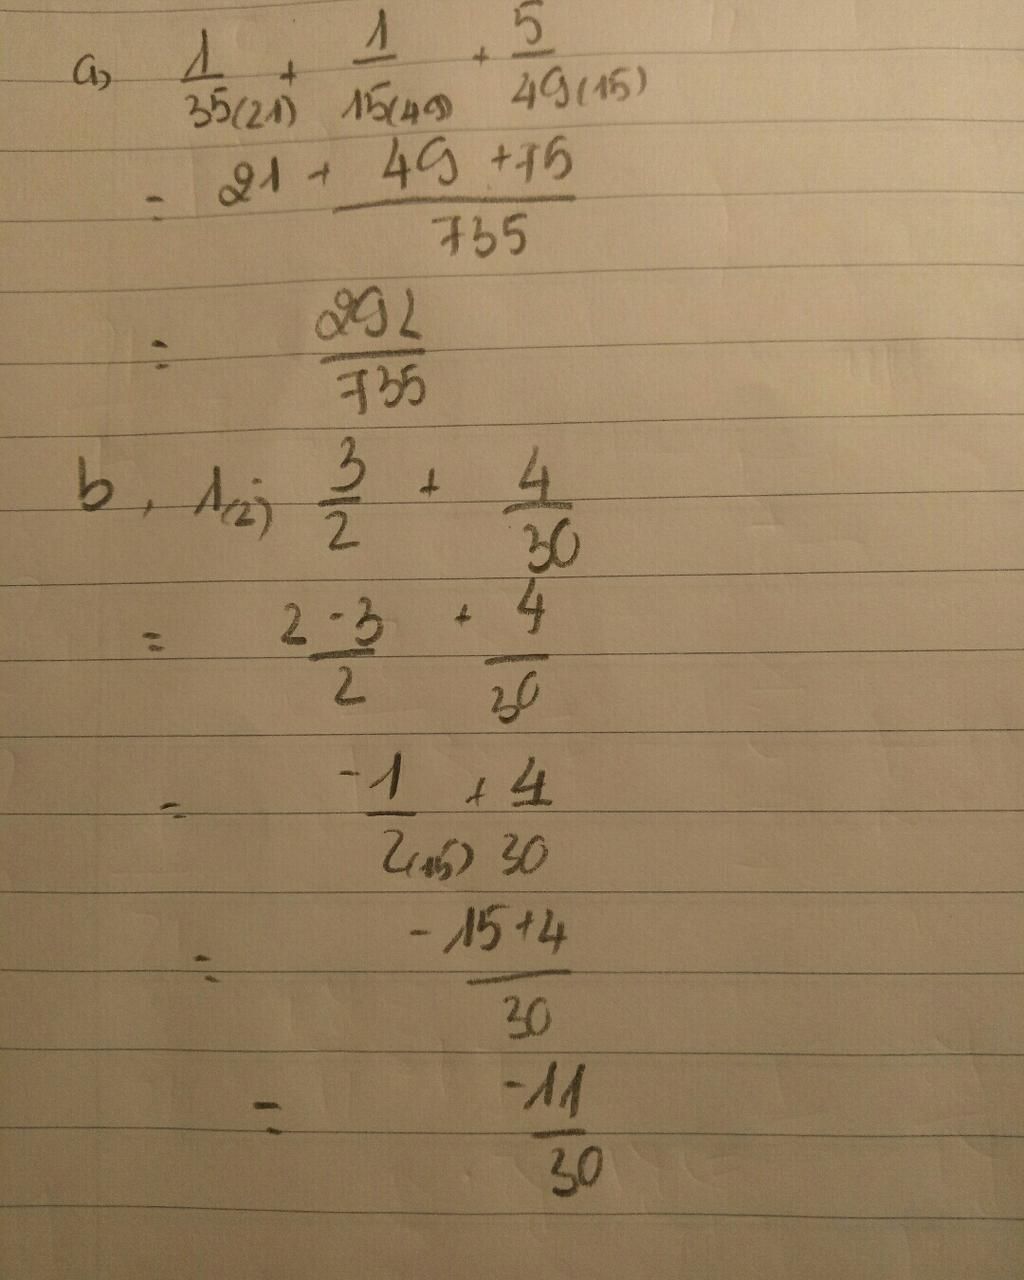 a, 1/35(21) + 1/15(49) + 5/49(15)
= 21 + 49 + 75 / 735
= 292/735
b, 1(2) - 3/2 + 4/30
= 2 - 3/2 + 4/30
= -1/2(15) + 4/30
= -15+4/30
= -11/30